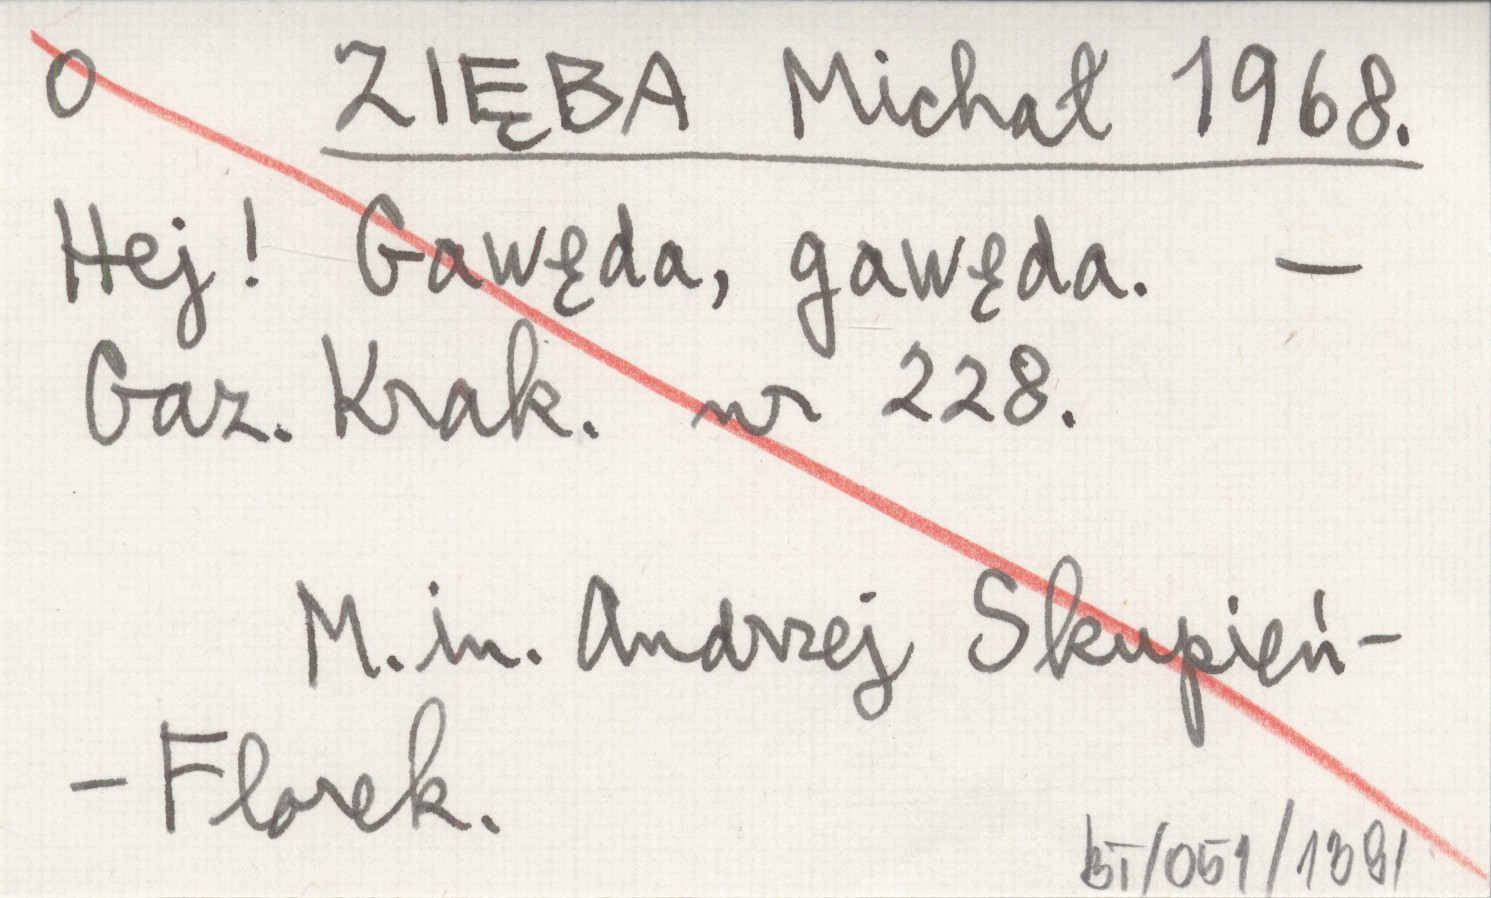 O ZIĘBA Michał 1968.
Hej! Gawęda, gawęda. –
Gaz. Krak. nr 228.
M.in. Andrzej Skupień-
-Florek.
BT/051/1391